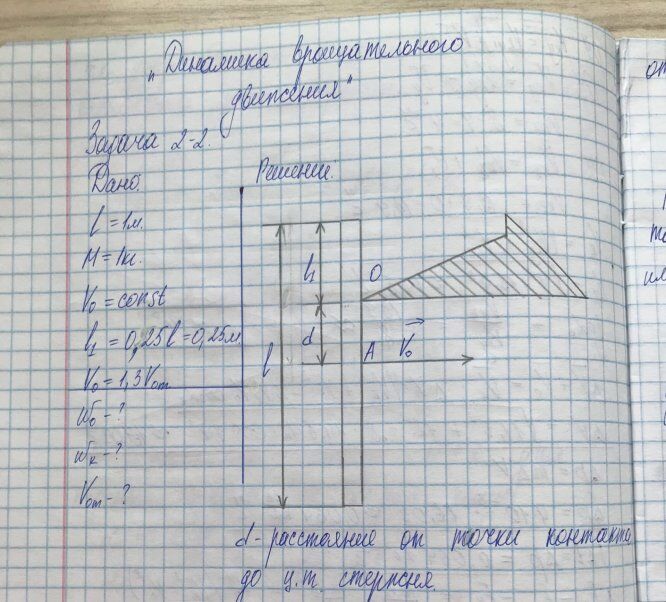 „Динамика вращательного
движения"
Задача 2-2.
Дано:
Решение:
l = 1м.
M = 1кг.
V₀ = const
l₁ = 0,25l = 0,25м
V₀ = 1,3V₀ₘ
ω₀ - ?
ωₖ - ?
V₀ₘ - ?
l₁
O
d
l
A
V₀
d - расстояние от точки контакта
до ц.т. стержня.
от